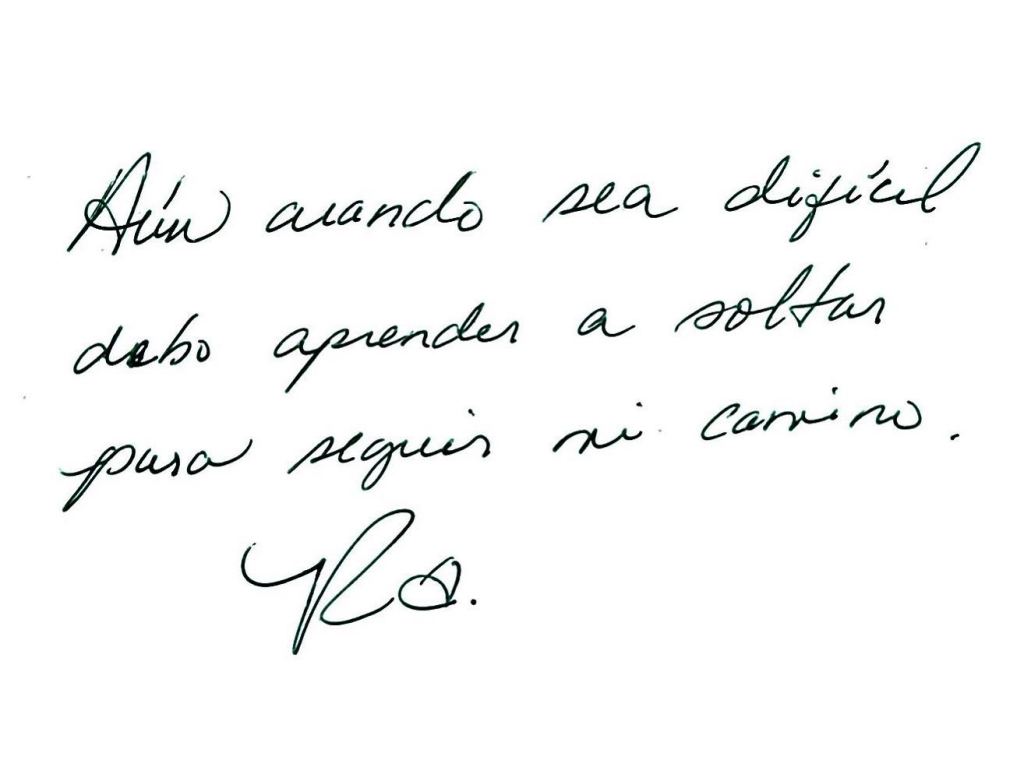 Aún cuando sea difícil
debo aprender a soltar
para seguir mi camino.